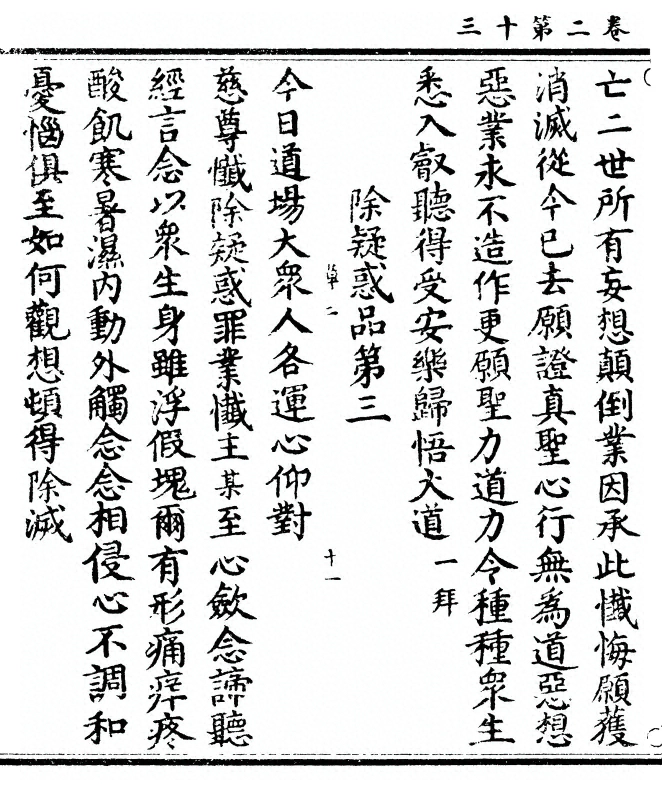 三十第二卷
亡二世所有妄想顛倒業因承此懺悔願獲
消滅從今已去願證真聖心行無為道惡想
惡業永不造作更願聖力道力令種種眾生
悉入叡聽得受安樂歸悟大道 一拜
除疑惑品第三
草二 十一
今日道場大眾人各運心仰對
慈尊懺除疑惑罪業懺主某至心歛念諦聽
經言念以眾生身雖浮假塊爾有形痛痒疼
酸飢寒暑濕內動外觸念念相侵心不調和
憂惱俱至如何觀想頓得除滅